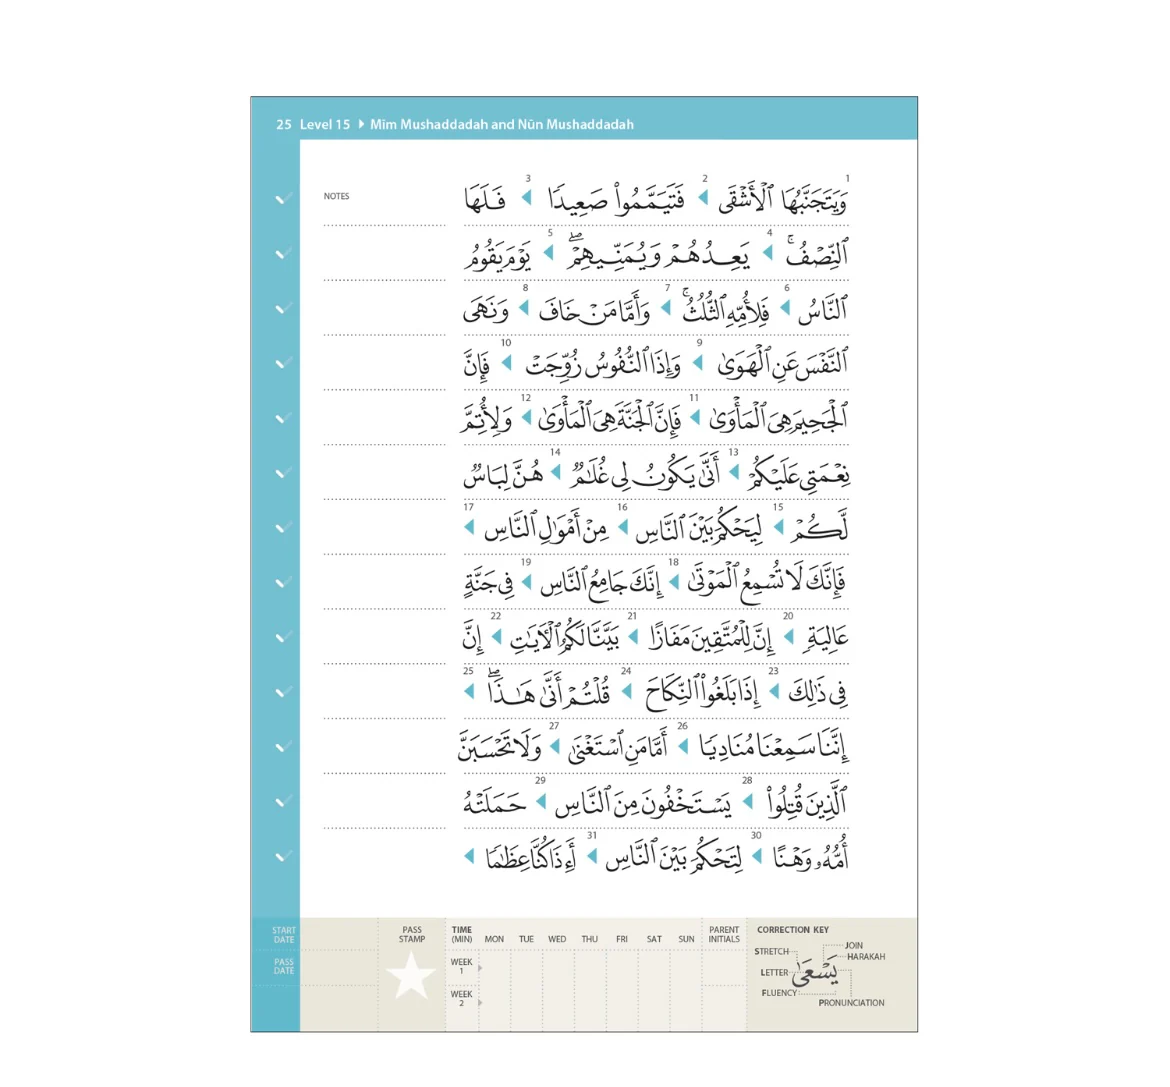 25 Level 15 ▸ Mīm Mushaddadah and Nūn Mushaddadah
NOTES
1 2 3
وَيَتَجَنَّبُهَا ٱلْأَشْقَى ◂ فَتَيَمَّمُوا۟ صَعِيدًا ◂ فَلَهَا
4 5
ٱلنِّصْفُ ۚ ◂ يَعِدُهُمْ وَيُمَنِّيهِمْ ۖ ◂ يَوْمَ يَقُومُ
6 7 8
ٱلنَّاسُ ◂ فَلِأُمِّهِ ٱلثُّلُثُ ۚ ◂ وَأَمَّا مَنْ خَافَ ◂ وَنَهَى
9 10
ٱلنَّفْسَ عَنِ ٱلْهَوَىٰ ◂ وَإِذَا ٱلنُّفُوسُ زُوِّجَتْ ◂ فَإِنَّ
11 12
ٱلْجَحِيمَ هِىَ ٱلْمَأْوَىٰ ◂ فَإِنَّ ٱلْجَنَّةَ هِىَ ٱلْمَأْوَىٰ ◂ وَلِأُتِمَّ
13 14
نِعْمَتِى عَلَيْكُمْ ◂ أَنَّىٰ يَكُونُ لِى غُلَـٰمٌ ◂ هُنَّ لِبَاسٌ
15 16 17
لَّكُمْ ◂ لِيَحْكُمَ بَيْنَ ٱلنَّاسِ ◂ مِنْ أَمْوَٰلِ ٱلنَّاسِ ◂
18 19
فَإِنَّكَ لَا تُسْمِعُ ٱلْمَوْتَىٰ ◂ إِنَّكَ جَامِعُ ٱلنَّاسِ ◂ فِى جَنَّةٍ
20 21 22
عَالِيَةٍ ◂ إِنَّ لِلْمُتَّقِينَ مَفَازًا ◂ بَيَّنَّا لَكُمُ ٱلْـَٔايَـٰتِ ◂ إِنَّ
23 24 25
فِى ذَٰلِكَ ◂ إِذَا بَلَغُوا۟ ٱلنِّكَاحَ ◂ قُلْتُمْ أَنَّىٰ هَـٰذَا ۖ ◂
26 27
إِنَّنَا سَمِعْنَا مُنَادِيًا ◂ أَمَّا مَنِ ٱسْتَغْنَىٰ ◂ وَلَا تَحْسَبَنَّ
28 29
ٱلَّذِينَ قُتِلُوا۟ ◂ يَسْتَخْفُونَ مِنَ ٱلنَّاسِ ◂ حَمَلَتْهُ
30 31
أُمُّهُۥ وَهْنًا ◂ لِتَحْكُمَ بَيْنَ ٱلنَّاسِ ◂ أَءِذَا كُنَّا عِظَـٰمًا ◂
START DATE
PASS DATE
PASS STAMP
TIME (MIN) MON TUE WED THU FRI SAT SUN
WEEK 1
WEEK 2
PARENT INITIALS
CORRECTION KEY
STRETCH
JOIN
HARAKAH
LETTER
يَسْعَىٰ
FLUENCY
PRONUNCIATION